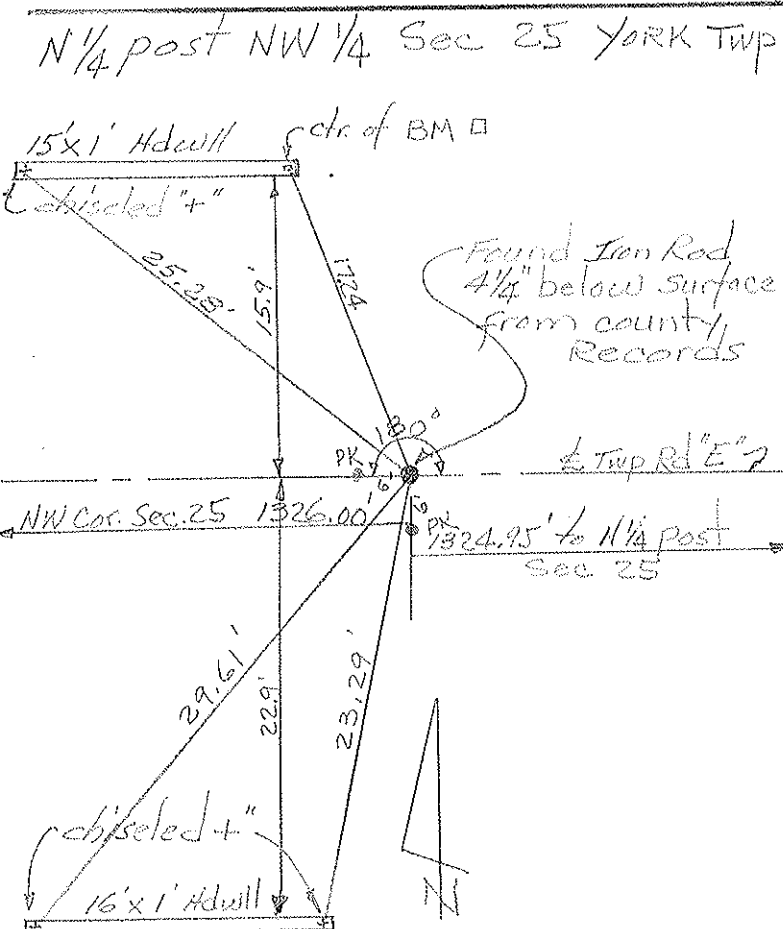 N 1/4 post NW 1/4 Sec 25 YORK Twp
15'x1' Hdwll
ctr. of BM □
chiseled "+"
25.28'
15.9'
17.24
Found Iron Rod
4 1/4" below Surface
from county
Records
180°
PK
6'
℄ Twp Rd "E"
NW Cor. Sec. 25 1326.00'
6'
PK
1324.95' to N 1/4 post
Sec 25
29.61'
22.9'
23.29'
chiseled "+"
16'x1' Hdwll
N